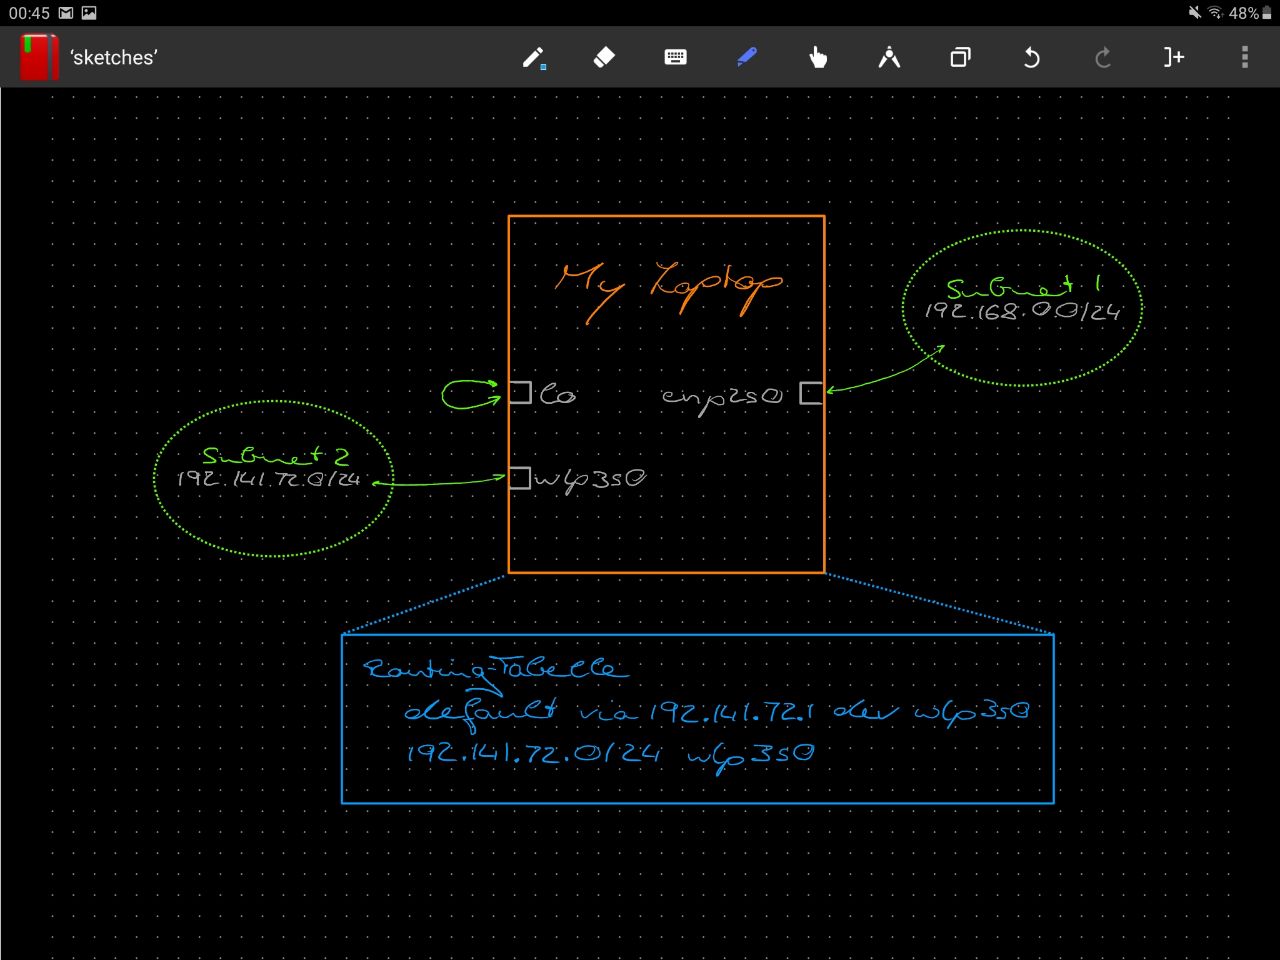 00:45
48%
'sketches'
My Laptop
Subnet 1
192.168.0.0/24
lo
enp2s0
Subnet 2
192.141.72.0/24
wlp3s0
Routing-Tabelle
default via 192.141.72.1 dev wlp3s0
192.141.72.0/24 wlp3s0